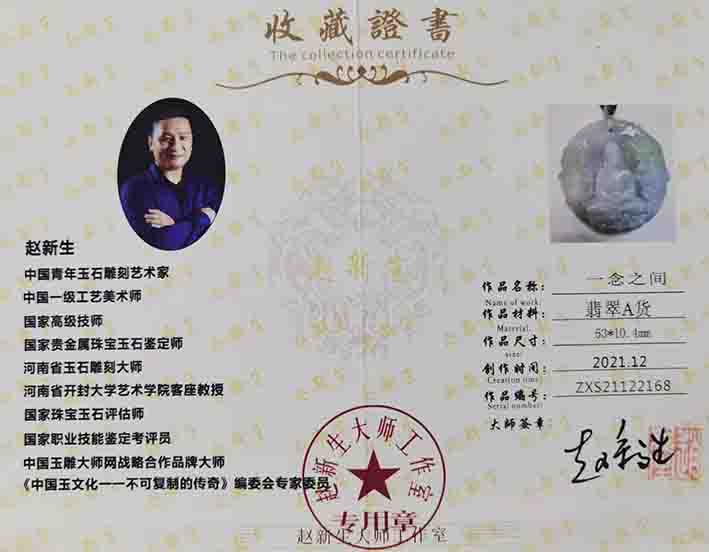 收藏證書
The collection certificate
赵新生
中国青年玉石雕刻艺术家
中国一级工艺美术师
国家高级技师
国家贵金属珠宝玉石鉴定师
河南省玉石雕刻大师
河南省开封大学艺术学院客座教授
国家珠宝玉石评估师
国家职业技能鉴定考评员
中国玉雕大师网战略合作品牌大师
《中国玉文化一一不可复制的传奇》编委会专家委员
赵新生
作品名称: 一念之间
Name of work:
作品材料: 翡翠A货
Material:
作品尺寸: 53*10.4mm
size:
创作时间: 2021.12
Creation time:
作品编号: ZXS21122168
Serial number:
大师签章:
赵新生
赵新生大师工作室
专用章
赵新生大师工作室